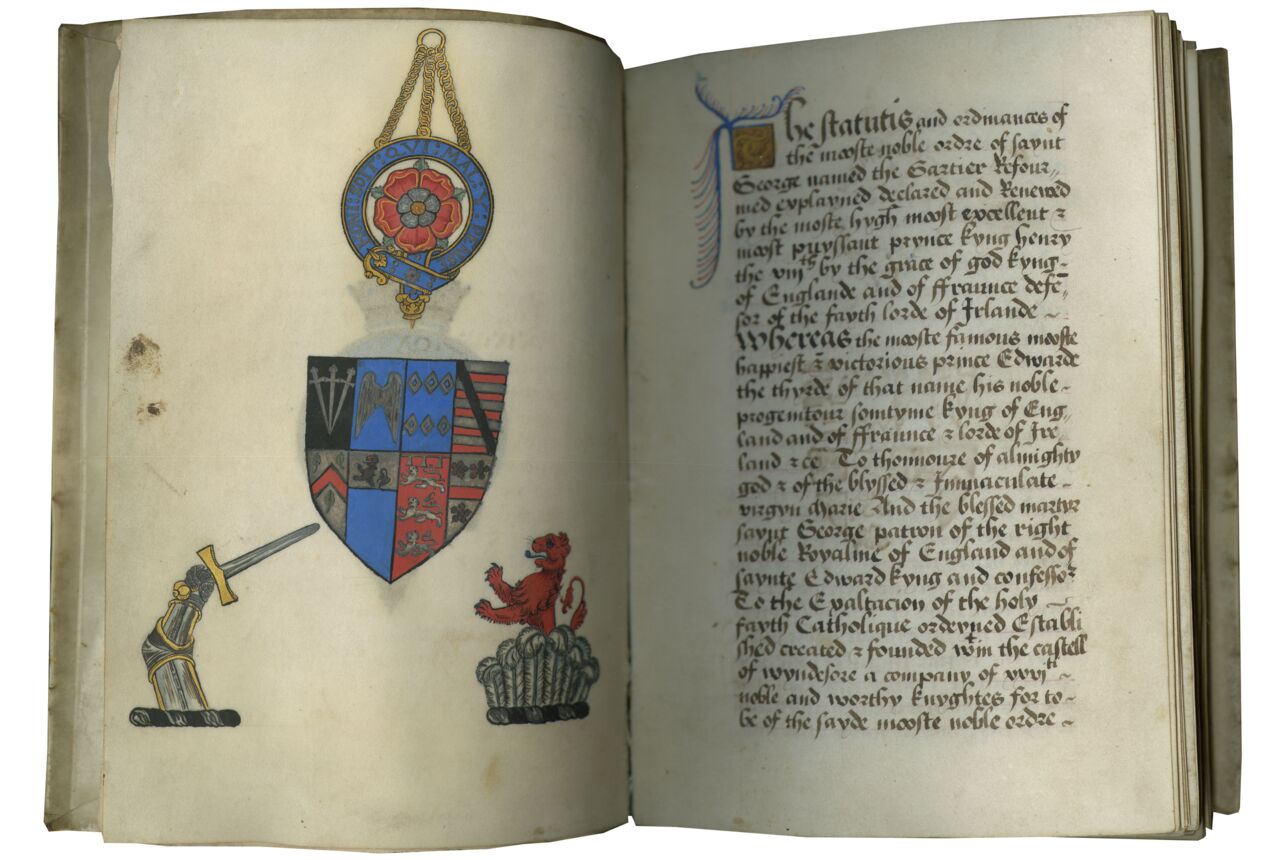 HONI·SOIT·QVI·MAL·Y·PENSE
The statutis and ordinances of
the mooste noble ordre of saynt
George named the Gartier Refour„
med explayned declared and Renewed
by the moste hygh moost excellent &
moost puyssant prynce kyng henry
the viijth by the grace of god kyng-
of Englande and of ffraunce defē„
sor of the fayth lorde of Irlande ~
Whereas the mooste famous mooste
happiest & victorious prince Edwarde
the thyrde of that name his noble-
progenitour somtyme kyng of Eng„
land and of ffraunce & lorde of Ire
land &cē To thonnoure of almighty
god & of the blyssed & Immaculate-
virgyn Marie And the blessed martyr
saynt George patron of the right
noble Royalme of England and of
saynte Edward kyng and confessor
To the Exaltacion of the holy ~
fayth Catholique ordeyned Establi
shed created & founded wtin the castell
of wyndesore a company of xxvjti ~
noble and worthy knyghtes for to~
be of the sayde mooste noble ordre ~